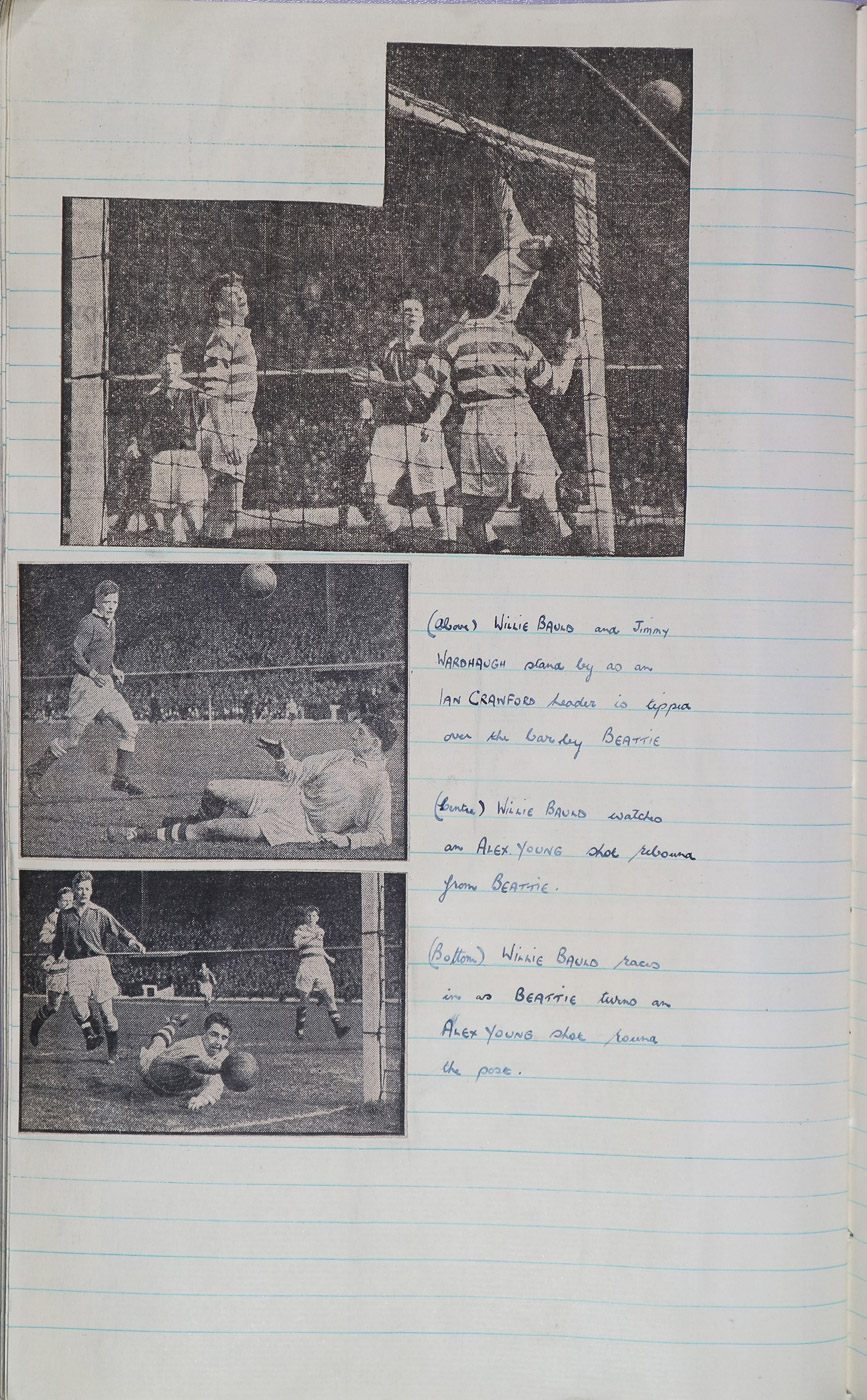 (Above) WILLIE BAULD and JIMMY
WARDHAUGH stand by as an
IAN CRAWFORD header is tipped
over the bar by BEATTIE
(Centre) WILLIE BAULD watches
an ALEX YOUNG shot rebound
from BEATTIE.
(Bottom) WILLIE BAULD races
in as BEATTIE turns an
ALEX YOUNG shot round
the post.